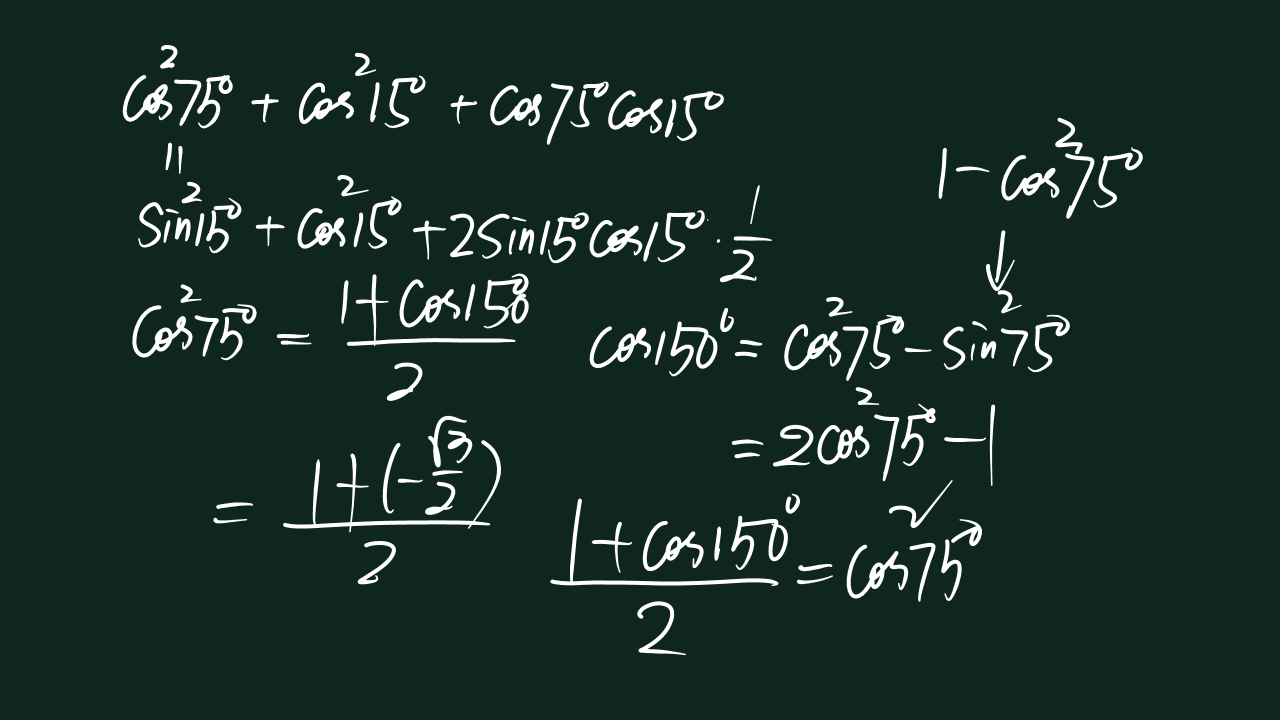 cos²75° + cos²15° + cos75°cos15°
॥
sin²15° + cos²15° + 2sin15°cos15° · 1/2
1 - cos²75°
↓
cos²75° = (1 + cos150°)/2
cos150° = cos²75° - sin²75°
= 2cos²75° - 1
= (1 + (-√3/2))/2
(1 + cos150°)/2 = cos75°